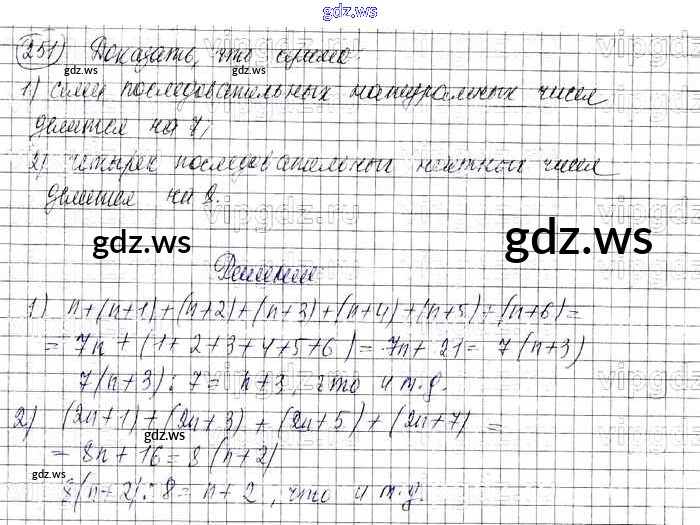 gdz.ws
251) Доказать, что сумма:
gdz.ws gdz.ws
1) семи последовательных натуральных чисел
делится на 7;
2) четырех последовательных нечетных чисел
делится на 8.
gdz.ws gdz.ws
Решение
1) n+(n+1)+(n+2)+(n+3)+(n+4)+(n+5)+(n+6)=
= 7n + (1+2+3+4+5+6) = 7n+21 = 7(n+3)
7(n+3) : 7 = n+3, что и т.д.
gdz.ws gdz.ws
2) (2n+1)+(2n+3)+(2n+5)+(2n+7) =
= 8n+16 = 8(n+2)
gdz.ws
8(n+2) : 8 = n+2, что и т.д.